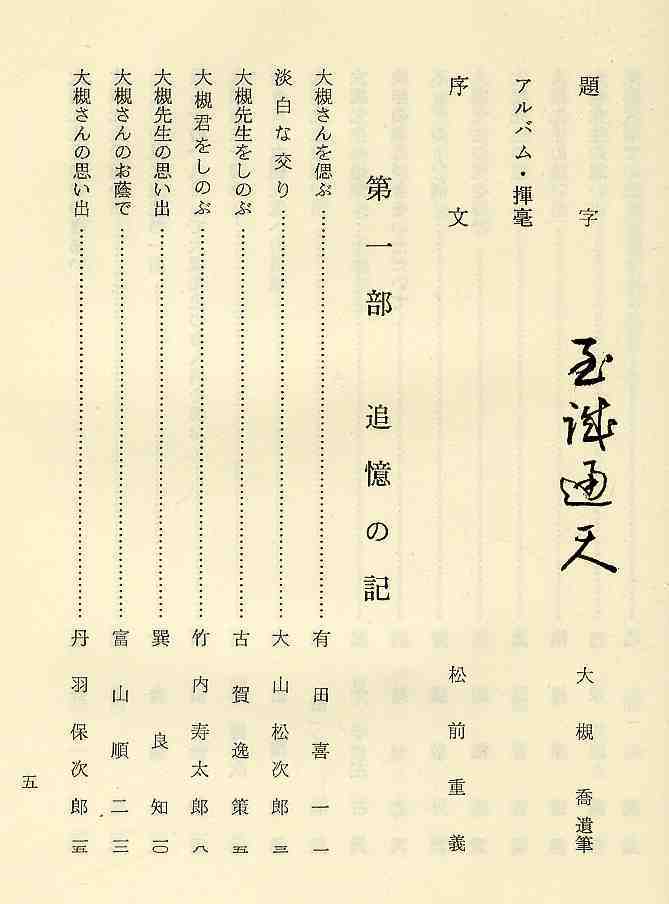 題字 至誠通天 大槻喬遺筆
アルバム・揮毫
序文 松前重義
第一部 追憶の記
大槻さんを偲ぶ……………………有田喜一 一
淡白な交り……………………大山松次郎 三
大槻先生をしのぶ……………………古賀逸策 五
大槻君をしのぶ……………………竹内寿太郎 八
大槻先生の思い出……………………巽良知 一〇
大槻さんのお蔭で……………………富山順二 一三
大槻さんの思い出……………………丹羽保次郎 一五
五